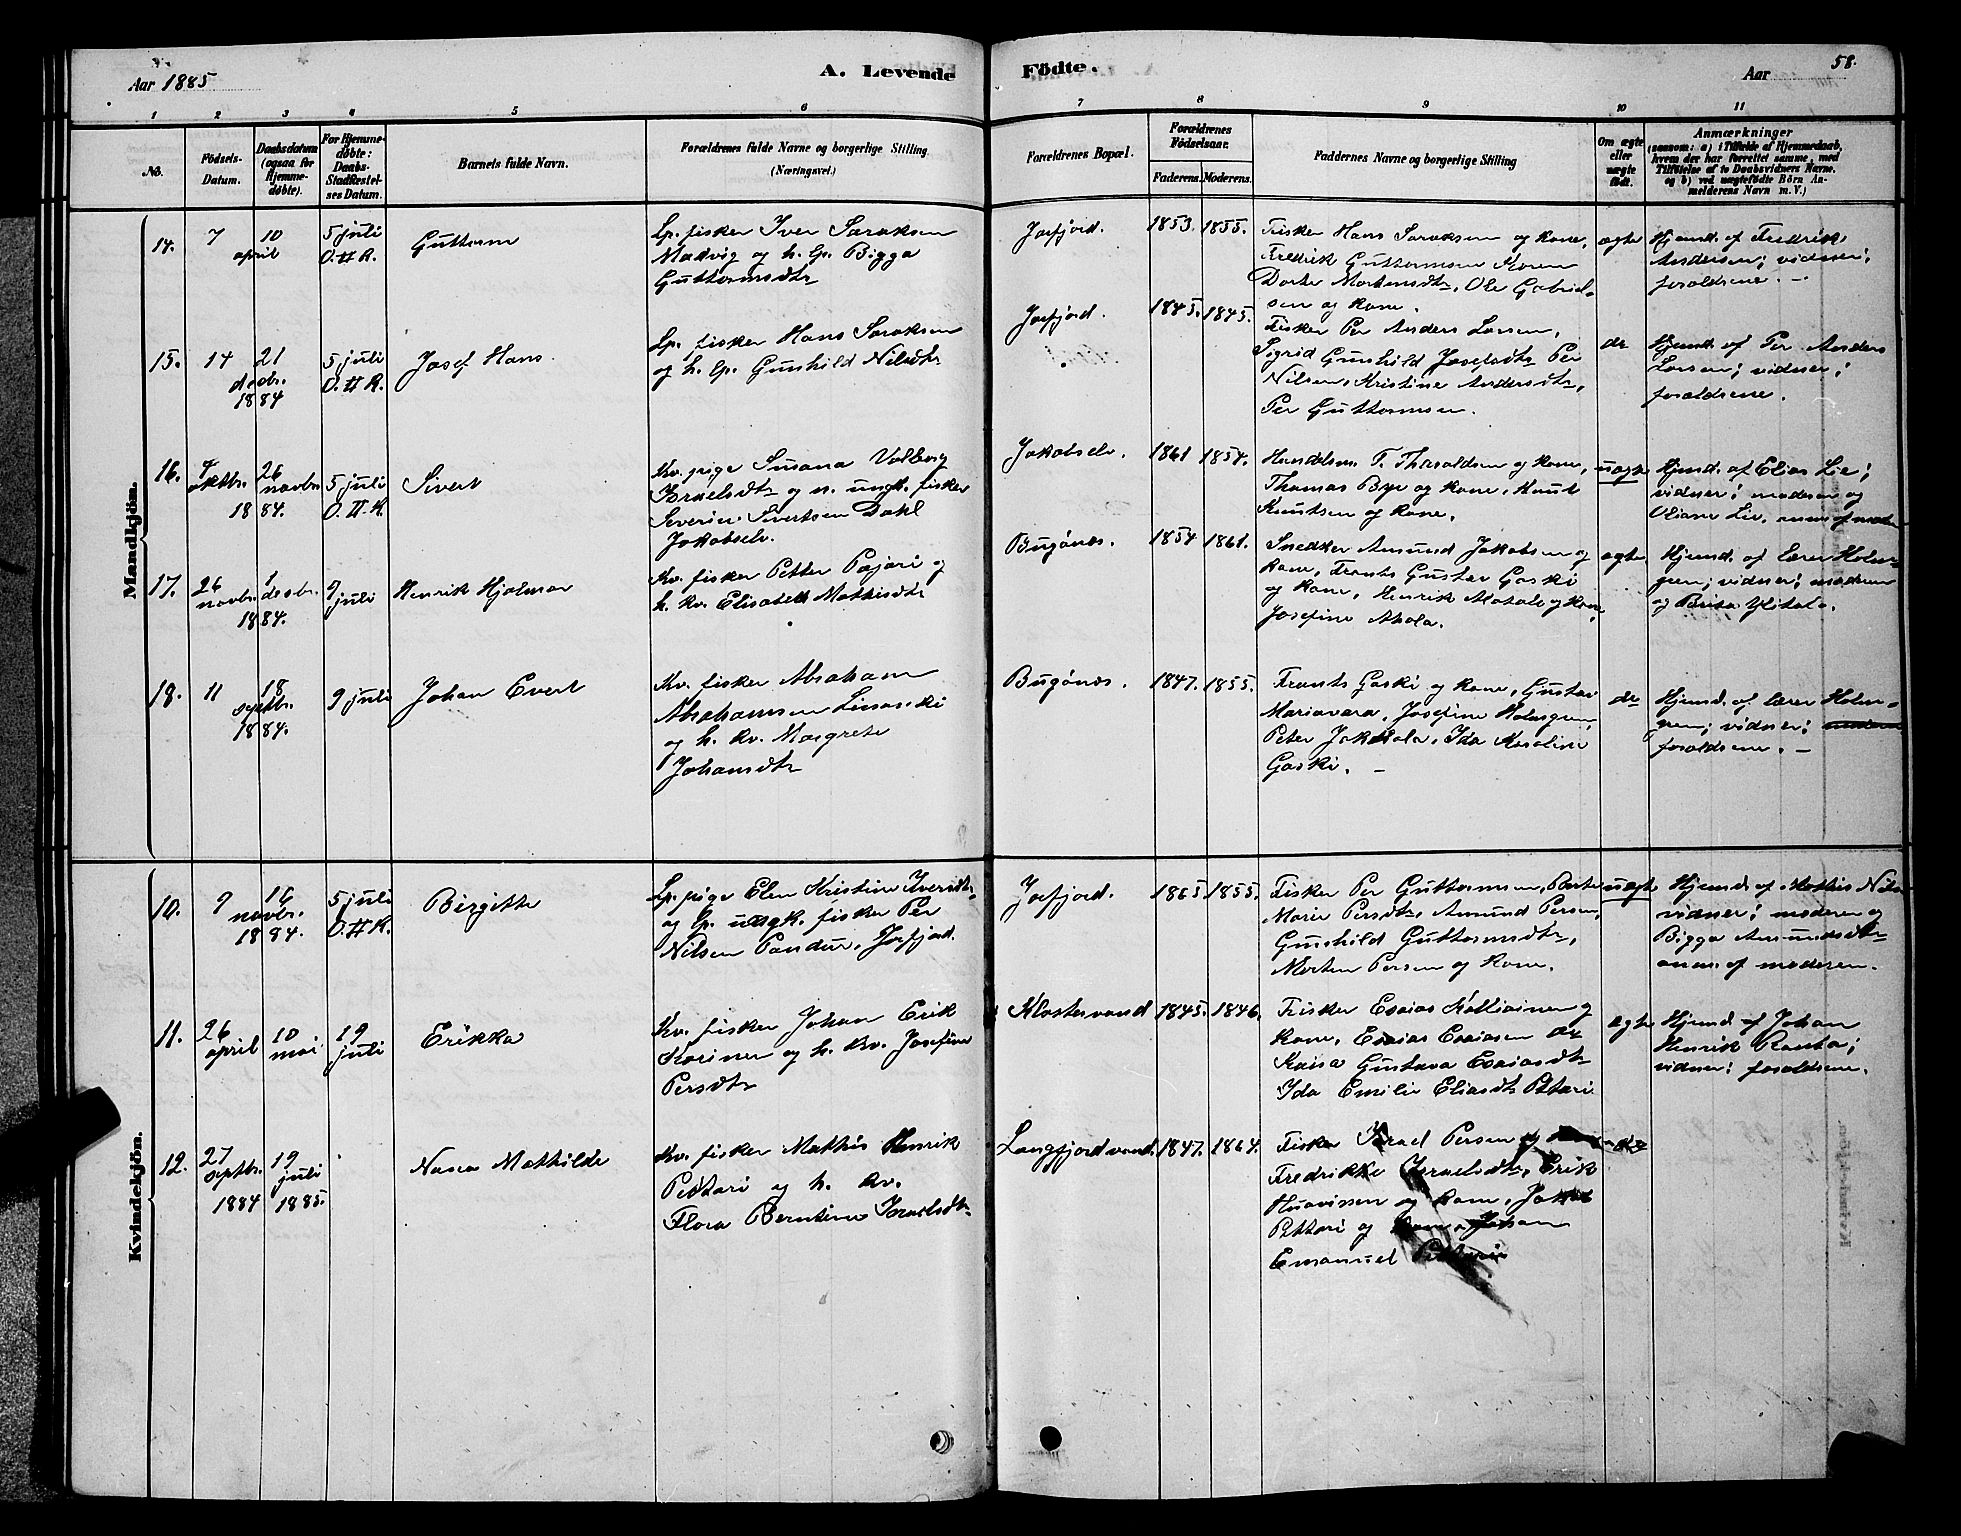 Aar 1885
A. Levende
Födte.
Aar
58.
1 2 3 4 5 6 7 8 9 10 11
No.
Födsels-
Datum.
Daabsdatum
(ogsaa för
Hjemme-
döbte).
For Hjemme-
döbte:
Daabs-
Stadfæstel-
ses Datum.
Barnets fulde Navn.
Forældrenes fulde Navne og borgerlige Stilling
(Næringsvei.)
Forældrenes Bopæl.
Forældrenes
Födselsaar.
Faderens. Moderens.
Faddernes Navne og borgerlige Stilling
Om ægte
eller
uægte
födt.
Anmærkninger
(saasom: a) i Tilfælde af Hjemmedaab,
hvem der har forrettet samme, med
Tilföielse af to Daabsvidners Navne.
og b) ved uægtefödte Börn An-
melderens Navn m. V.)
Mandkjön.
14.
7
10
april
5 juli
O. # K.
Guttorm
Lp. fisker Iver Saraksen
Madvig og h. lp. Bigga
Guttormsdtr
Jarfjord.
1853. 1855.
Fisker Hans Saraksen og Kone,
Fredrik Guttormsen Karen
Dorte Mortensdtr, Ole Gabriel-
sen og Kone.
ægte
Hjemd. af Fredrik
Andersen; vidner:
forældrene. –
15.
14
21
decbr.
1884
5 juli
O. # K.
Josef Hans.
Lp. fisker Hans Saraksen
og h. lp. Gunhild Nilsdtr
Jarfjord.
1845. 1845.
Fisker Per Anders Larsen,
Sigrid Gunhild Josefsdtr Per
Nilsen, Kristine Andersdtr,
Per Guttormsen.
do
Hjemd. af Per Anders
Larsen; vidner:
forældrene.
16.
7
oktbr.
26
novbr.
1884.
5 juli
O. # K.
Sivert
Kv. pige Susana Valborg
Israelsdtr og n. ungk. fisker
Severin Sivertsen Dahl
Jakobselv.
Jakobselv.
1861 1854.
Handelsm. T. Tharaldsen og Kone,
Thomas Bye og Kone, Knut
Knutsen og Kone.
uægte
Hjemd. af Elias Lie;
vidner: moderen og
Oliane Lie, anm. af moder
17.
26
novbr.
1
decbr.
1884.
9
juli
Henrik Hjalmar
Kv. fisker Petter Pajari og
h. kv. Elisabeth Mathisdtr
Bugönæs.
1854 1861.
Snedker Amund Jakobsen og
Kone, Frants Gustav Gaski
og Kone, Henrik Matala og Kone,
Josefine Ahola.
ægte
Hjemd. af lærer Holm-
gren; vidner: moderen
og Brita Ylitalo.
18.
11
18
septbr.
1884.
9 juli
Johan Evert
Kv. fisker Abraham
Abrahamsen
og h. kv. Margrete
Johansdtr
Bugönæs.
1847. 1855.
Frants Gaski og Kone, Gustav
Mariavara, Josefine Holmgren,
Peter Jakola, Ida Karoline
Gaski. –
do
Hjemd. af lærer Holm-
gren; vidner:
forældrene. –
Kvindekjön.
10.
9
16
novbr.
1884.
5 juli
O. # K.
Birgitte
Lp. pige Elen Kristine Iversdtr
og lp. ungk. fisker Per
Nilsen Pandur, Jarfjord.
Jarfjord.
1865 1855.
Fisker Per Guttormsen, Berte
Marie Persdtr, Amund Persen,
Gunhild Guttormsdtr,
Morten Persen og Kone.
uægte
Hjemd. af Mathis Nils
vidner: moderen og
Bigga Amundsdtr
anm. af moderen.
11.
26
april
10
mai
19
juli
Erikka
Kv. fisker Johan Erik
Karinen og h. kv. Josefine
Persdtr
Klostervand
1845. 1846.
Fisker Esaias Kalliainen og
Kone, Esaias Esaiasen
Kaisa Gustava Esaiasdtr
Ida Emilie Eliasdtr Pettari
ægte
Hjemd. af Johan
Henrik Ranta;
vidner: forældrene.
12.
27
septbr.
1884
19
juli
1885.
Nasea Mathilde
Kv. fisker Mathis Henrik
Pettari og h. kv.
Flora Berntine Israelsdtr
Langfjordvand.
1847. 1864.
Fisker Israel Persen og
Fredrikke Israelsdtr, Erik
og Kone, Jakob
Pettari og Kone, Johan
Emanuel Pettari